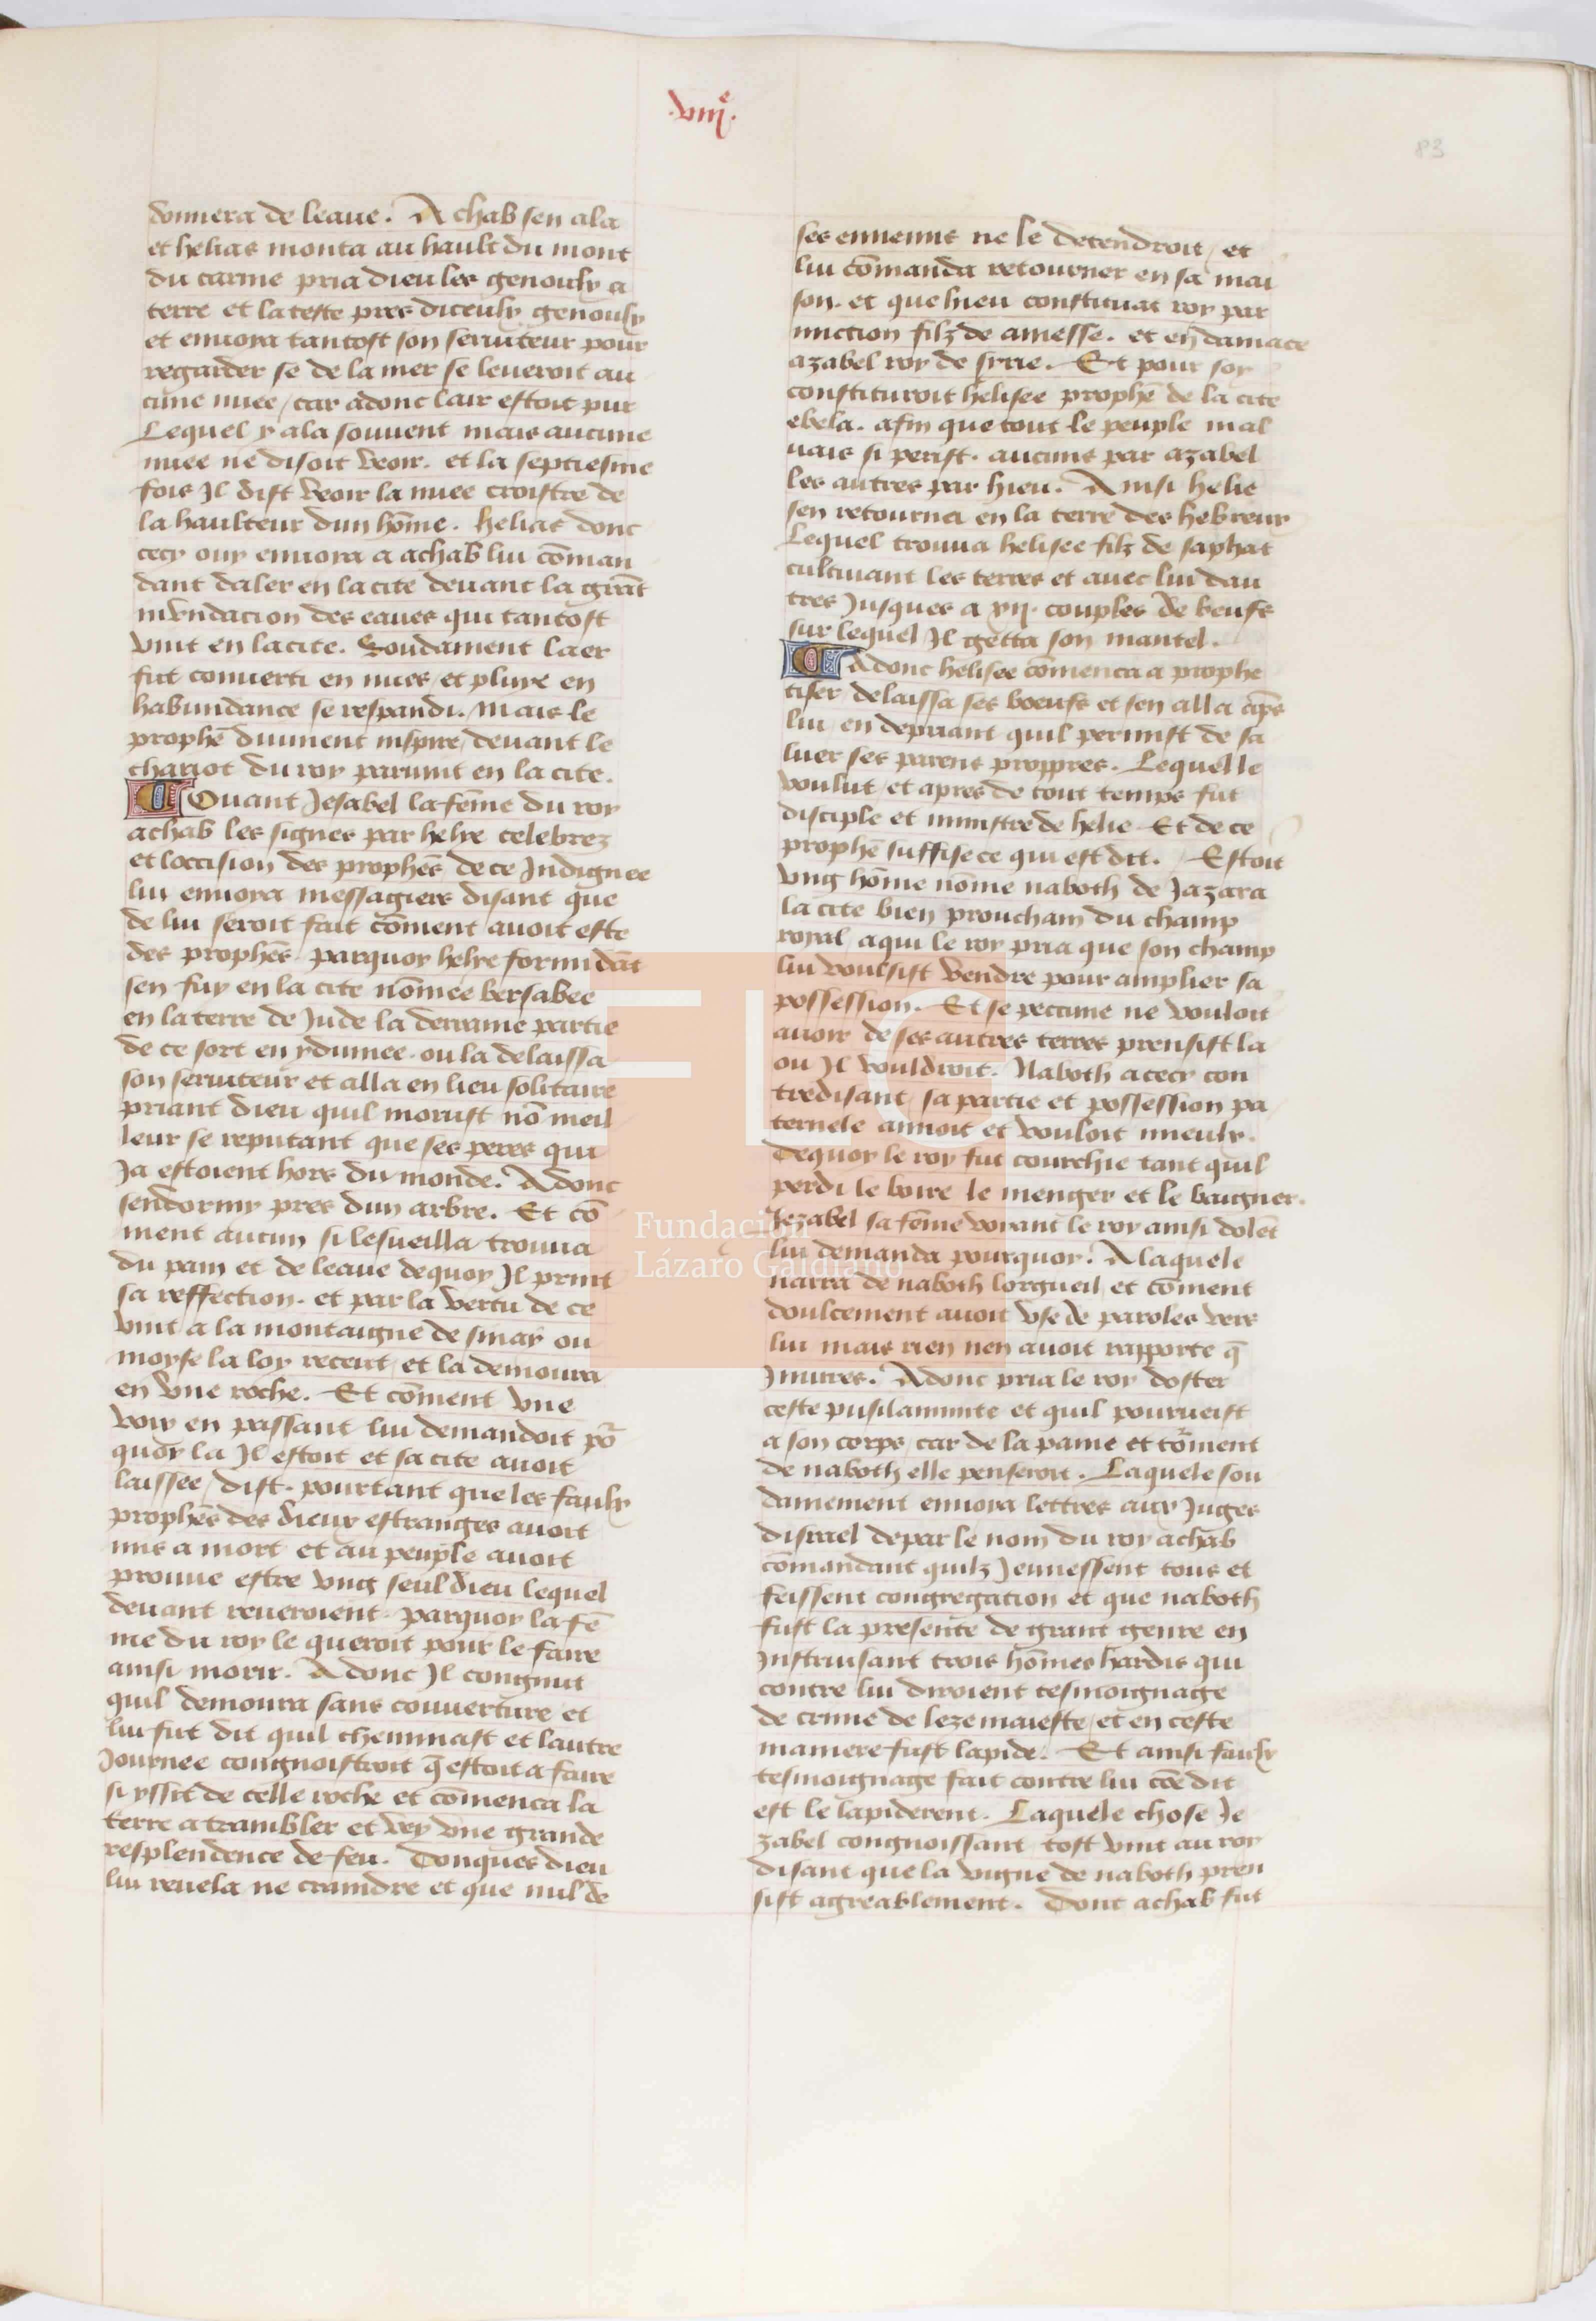 .viije.
83
donnera de leaue. Achab sen ala
et helias monta au hault du mont
du carme pria dieu les genoulx a
terre et la teste pres diceulx genoulx
et enuoya tantost son seruiteur pour
regarder se de la mer se leueroit au
cune nuee / car adonc lair estoit pur
Lequel y ala souuent mais aucune
nuee ne disoit veoir. et la septiesme
fois Il dist veoir la nuee croistre de
la haulteur dun hōme. helias donc
cecy ouy enuoya a achab lui cōman
dant daler en la cite deuant la grāt
inundacion des eaues qui tantost
vint en la cite. Soudament laer
fut conuerti en nues / et pluye en
habundance se respandi. Mais le
prophē diuinent inspire / deuant le
chariot du roy paruint en la cite.
Quant Jesabel la fēme du roy
achab les signes par helye celebrez
et loccision des prophēs de ce Indignee
lui enuoya messagiers disant que
de lui seroit fait cōment auoit este
des prophēs. parquoy helye formidāt
sen fuy en la cite nōmee bersabee
en la terre de Jude la derraine partie
de ce sort en ydumee. ou la delaissa
son seruiteur et alla en lieu solitaire
priant dieu quil morust nō meil
leur se reputant que ses peres qui
Ja estoient hors du monde. Adonc
sendormy pres dun arbre. Et cō
ment aucun si lesueilla trouua
du pain et de leaue dequoy Il print
sa reffection. et par la vertu de ce
vint a la montaigne de sinay ou
moyse la loy receut / et la demoura
en vne roche. Et cōment vne
voix en passant lui demandoit po᷑
quoy la Il estoit et sa cite auoit
laissee / dist. pourtant que les faulx
prophēs des dieux estranges auoit
mis a mort et au peuple auoit
prouue estre vng seul dieu lequel
deuant reueroient. parquoy la fē
me du roy le queroit pour le faire
ainsi morir. Adonc Il congnut
quil demoura sans couuerture et
lui fut dit quil cheminast et lautre
Journee congnoistroit q̄ estoit a faire
si yssit de celle roche et cōmenca la
terre a trambler et vey vne grande
resplendence de feu. Donques dieu
lui reuela ne craindre et que nul de
ses ennemis ne le detendroit / et
lui cōmanda retourner en sa mai
son. et que hieu constituat roy par
vnction filz de amesse. et en damace
azabel roy de sirie. Et pour soy
constituroit helisee prophē de la cite
ebela. afin que tout le peuple mal
uais si perist. aucuns par azabel
les autres par hieu. Ainsi helie
sen retourna en la terre des hebreux
Lequel trouua helisee filz de saphat
cultiuant les terres et auec lui dau
tres Jusques a xij. couples de beufs
sur lequel Il getta son mantel.
Adonc helisee cōmenca a prophe
tiser delaissa ses boeufs et sen alla ap̄s
lui en depriant quil permist de sa
luer ses parens propres. Lequel le
voulut / et apres de tout temps fut
disciple et ministre de helie Et de ce
prophē suffise ce qui est dit. Estoit
vng hōme nōme naboth de Jazara
la cite bien prouchain du champ
royal / a qui le roy pria que son champ
lui voulsist vendre pour amplier sa
possession. Et se peccune ne vouloit
auoir de ses autres terres prensist la
ou Il vouldroit. Naboth a cecy con
tredisant sa partie et possession pa
ternele aimoit et vouloit mieulx.
Dequoy le roy fut courchie tant quil
perdi le boire le menger et le baigner.
Jezabel sa fēme voyant le roy ainsi dolēt
lui demanda pourquoy. A laquele
narra de naboth lorgueil et cōment
doulcement auoit vse de paroles vers
lui mais rien nen auoit rapporte q̄
Iniures. Adonc pria le roy doster
ceste pusilanimite et quil pourueist
a son corps / car de la paine et to᷑ment
de naboth elle penseroit. Laquele sou
damement enuoya lettres aux Juges
disrael depar le nom du roy achab
cōmandant quilz Jeunessent tous et
feissent congregation et que naboth
fust la presente de grant genre en
Instruisant trois hōmes hardis qui
contre lui diroient tesmoignage
de crime de leze maieste / et en ceste
maniere fust lapide. Et ainsi faulx
tesmoignage fait contre lui cōe dit
est le lapiderent. Laquele chose Je
zabel congnoissant tost vint au roy
disant que la vigne de naboth pren
sist agreablement. Dont achab fut
Fundación
Lázaro Galdiano
FLG